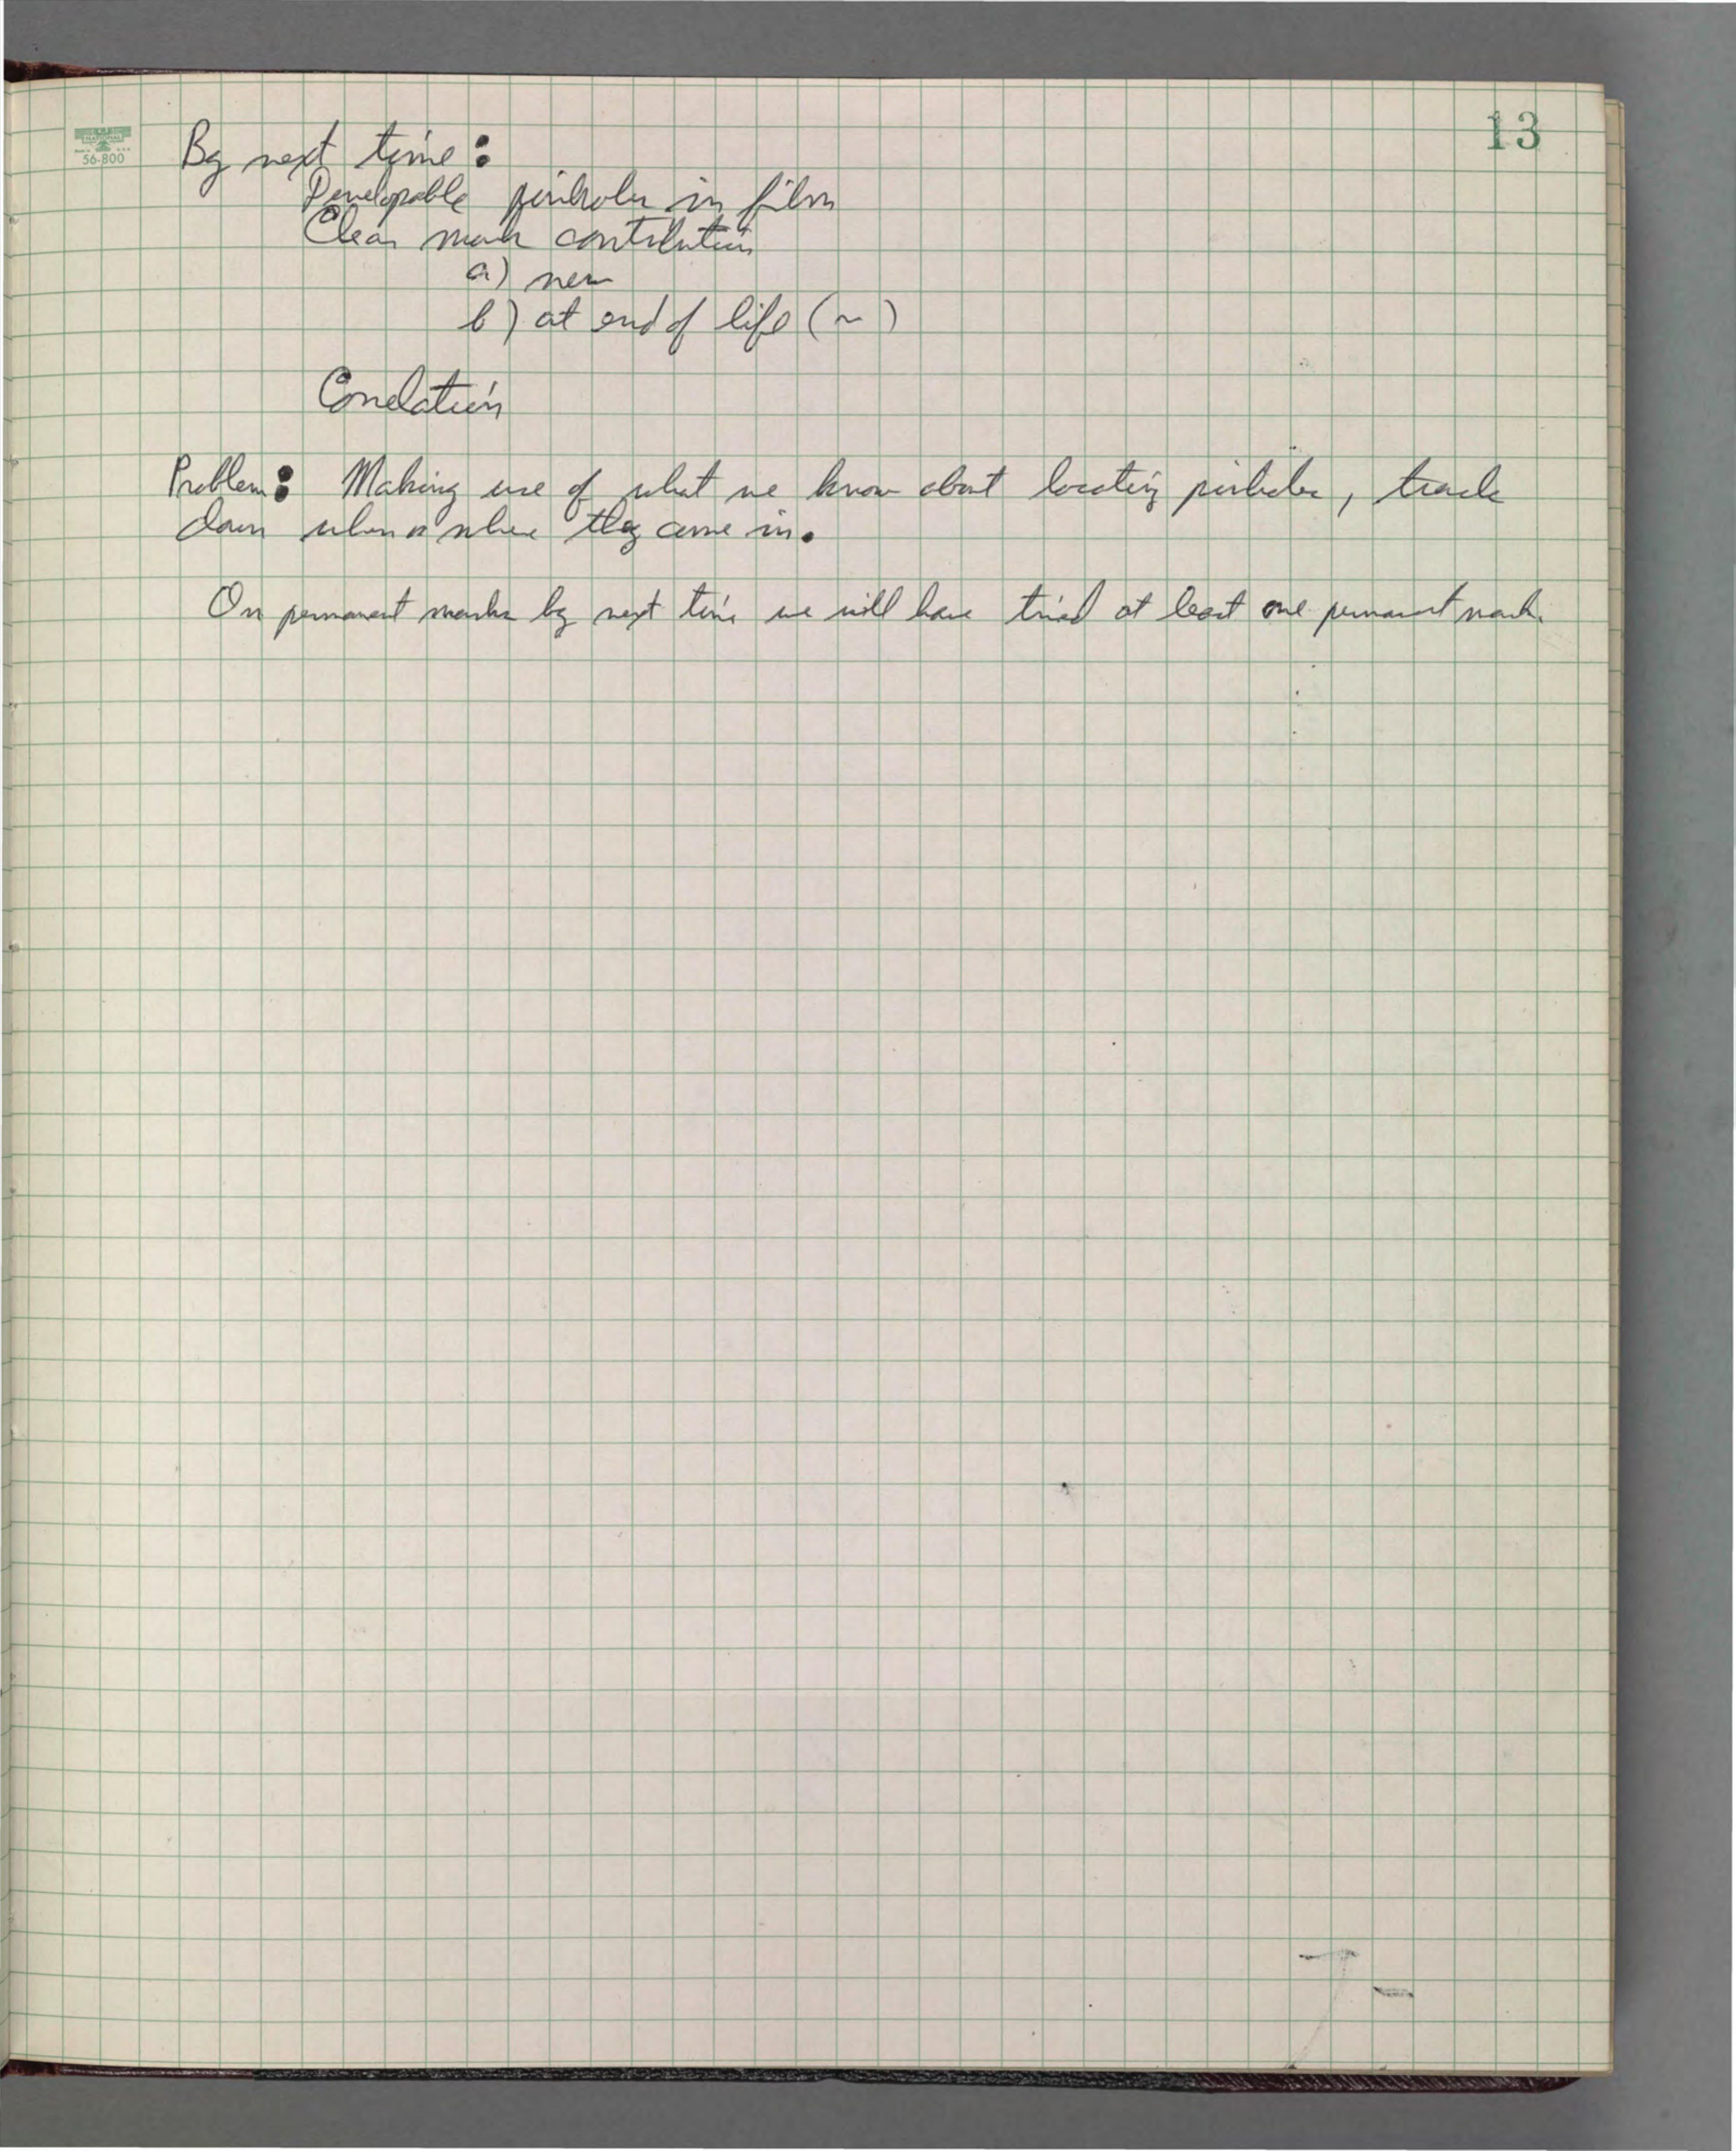 13
56-800
By next time:
Developable pinholes in film
Clean mask contribution
a) new
b) at end of life (~)
Correlation
Problem: Making use of what we know about locating pinholes, track
down when or where they come in.
On permanent masks by next time we will have tried at least one permanent mask.